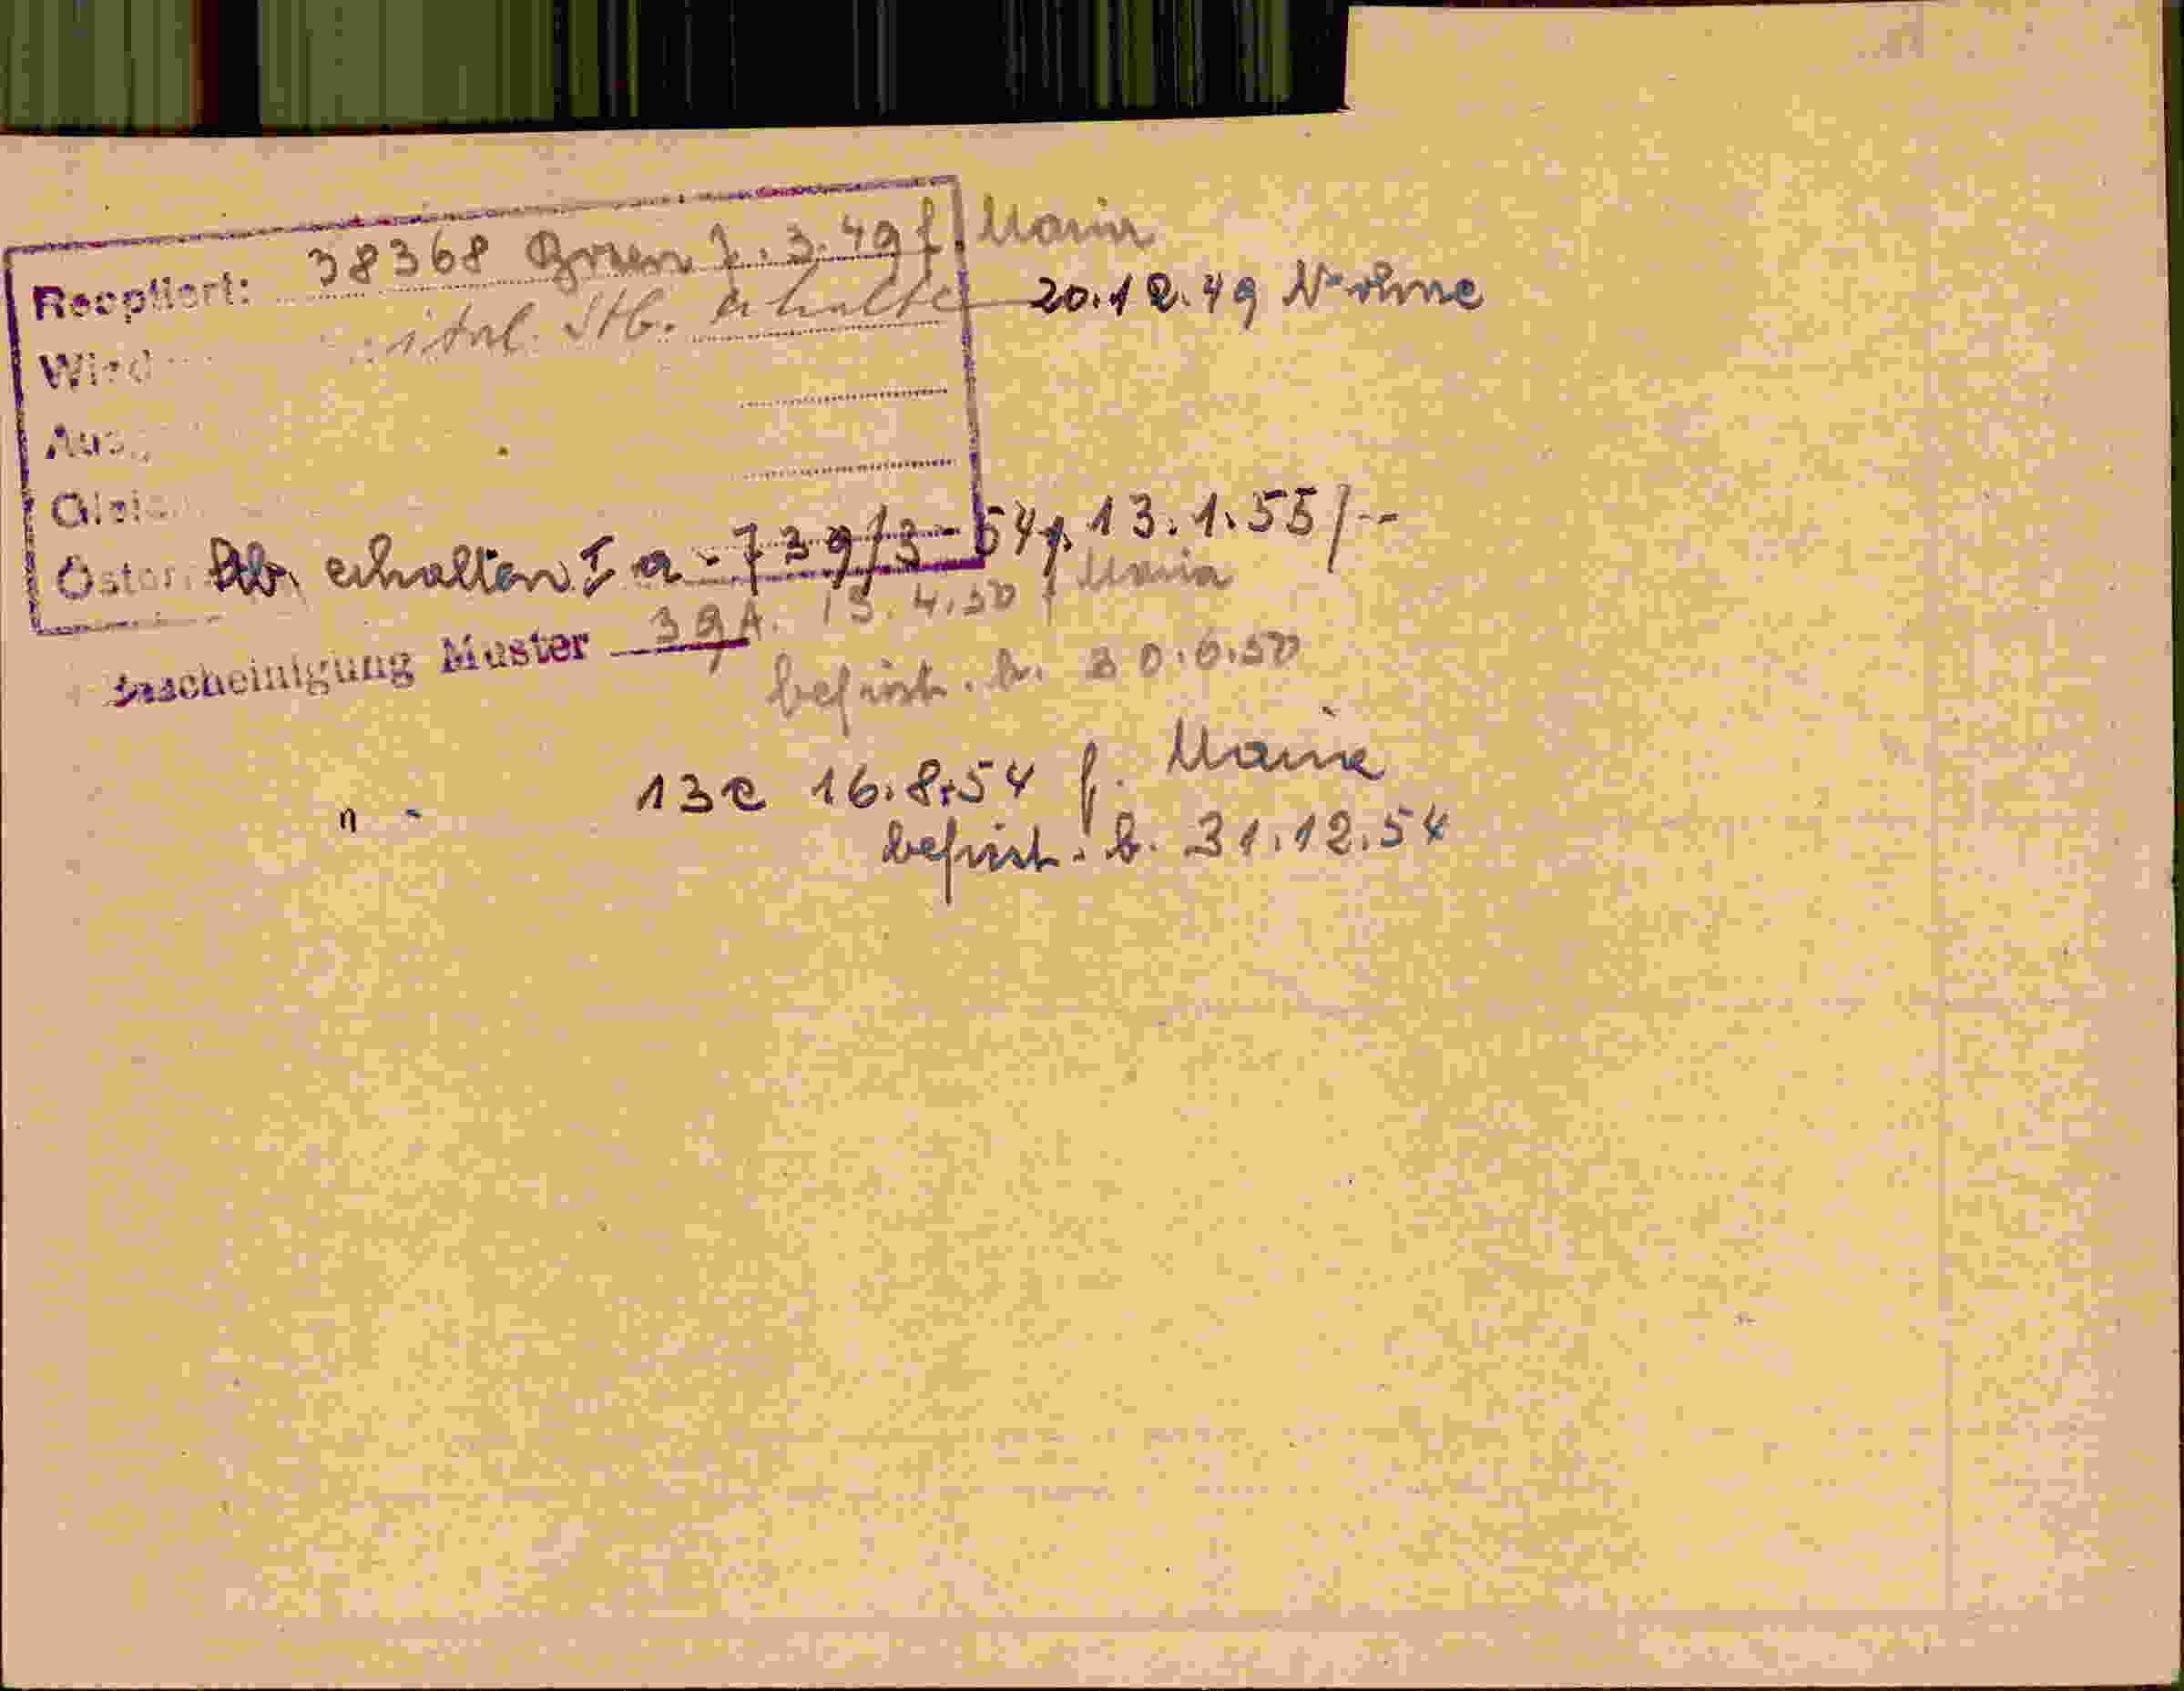 Reoptiert: 38368 Bozen 7.3.49 f. Maria
Wird ital. Stb. erhalte 20.12.49
Aus
Glei
Öster Stb. erhalten I a-739/3-54 13.1.55/--
Bescheinigung Muster 39A. 13.4.50 f Maria
befrist. b. 30.6.50
" - 13c 16.8.54 f. Maria
befrist. b. 31.12.54